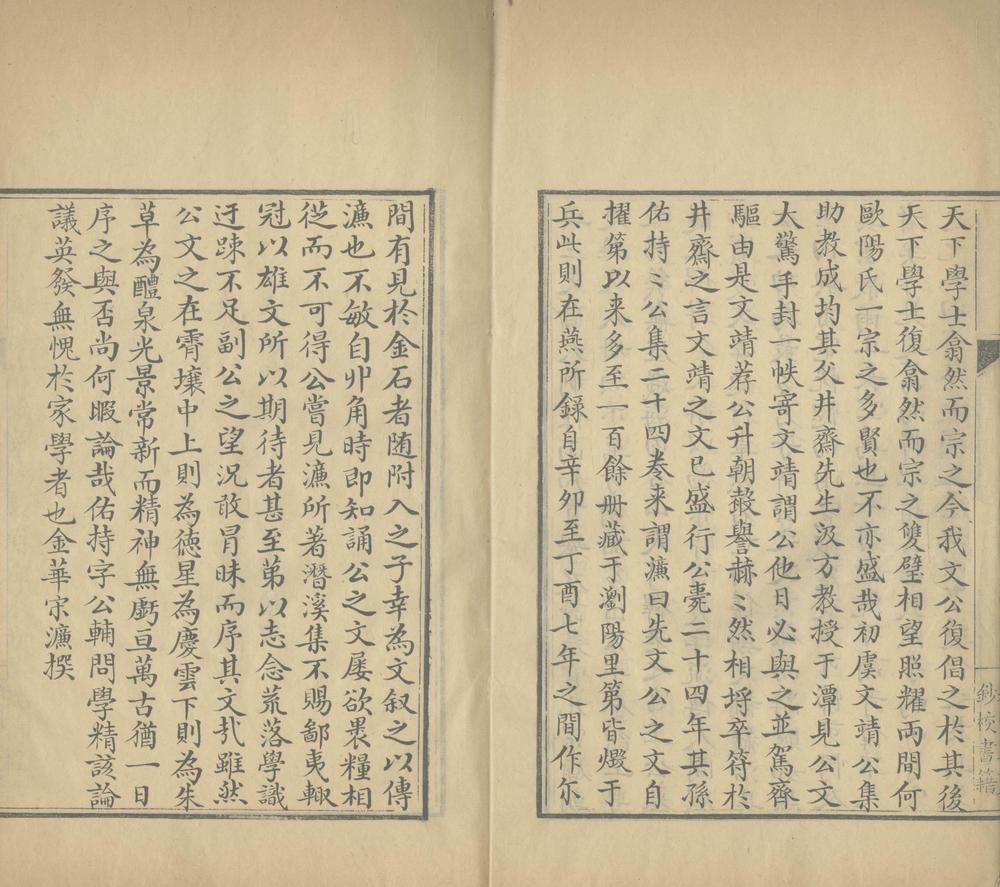 天下學士翕然而宗之今我文公復倡之於其後
天下學士復翕然而宗之雙璧相望照耀两間何
歐陽氏一宗之多賢也不亦盛哉初虞文靖公集
助教成均其父井齋先生汲方教授于潭見公文
大驚手封一帙寄文靖謂公他日必與之並駕齊
驅由是文靖荐公升朝聲譽赫〻然相埒卒符於
井齋之言文靖之文已盛行公薨二十四年其孫
佑持〻公集二十四卷来謂濂曰先文公之文自
擢第以来多至一百餘册藏于瀏陽里第皆燬于
兵此則在燕所錄自辛卯至丁酉七年之間作尔
鈔校書籍
間有見於金石者随附入之子幸為文叙之以傳
濂也不敏自丱角時即知誦公之文屡欲褁糧相
從而不可得公嘗見濂所著潛溪集不賜鄙夷輙
冠以雄文所以期待者甚至第以志念荒落學識
迂踈不足副公之望況敢冐昧而序其文㢤雖然
公文之在霄壤中上則為徳星為慶雲下則為朱
草為醴泉光景常新而精神無虧亘萬古猶一日
序之與否尚何暇論哉佑持字公輔問學精該論
議英發無愧於家學者也金華宋濂撰